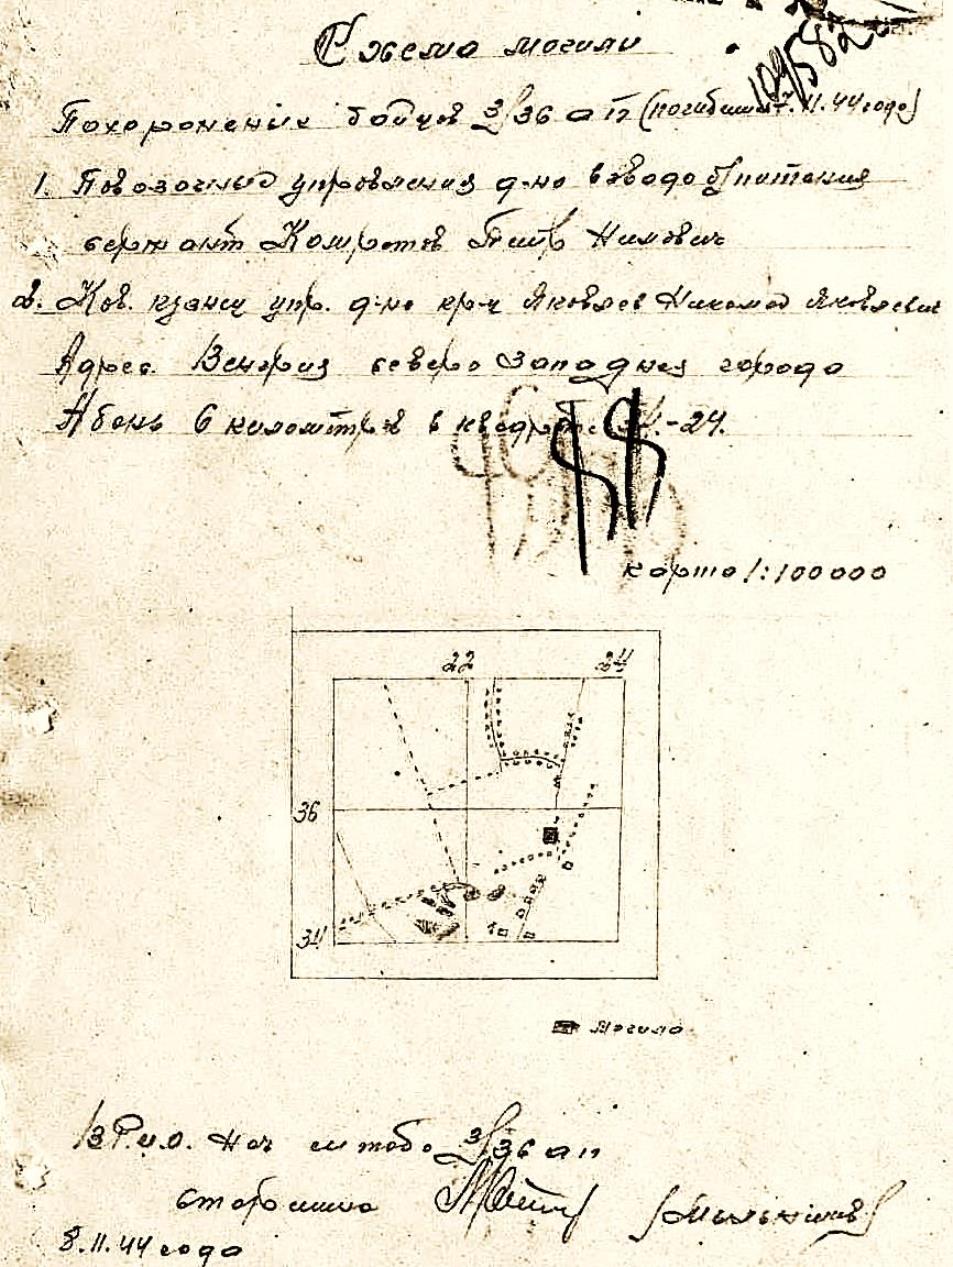 Схема могили
109582
Похоронених бойцов 3/36 ап (погибших 7.11.44 года)
1. Повозочный управления д-на взвода б/питания
сержант Комратов Петр Нилович
2. Ков. кузнец упр. д-на кр-ц Яковлев Никомод Яковлевич
Адрес. Венгрия северо западнея города
Абень 6 километров в квадрате -24.
карта 1:100000
22 24
36
34
могила
ВРИО. Нач штаба 3/36 ап
старшина
8.11.44 года